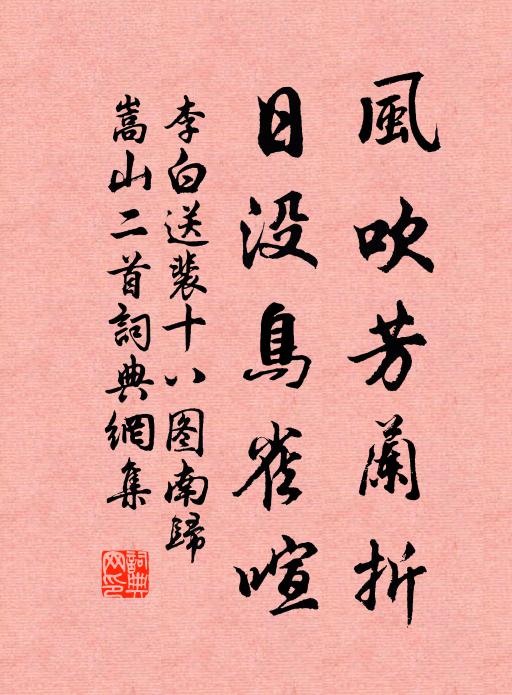 風吹芳蘭折
日没鳥雀喧
李白送裴十八图南歸
嵩山二首詞典網集
詞典网印